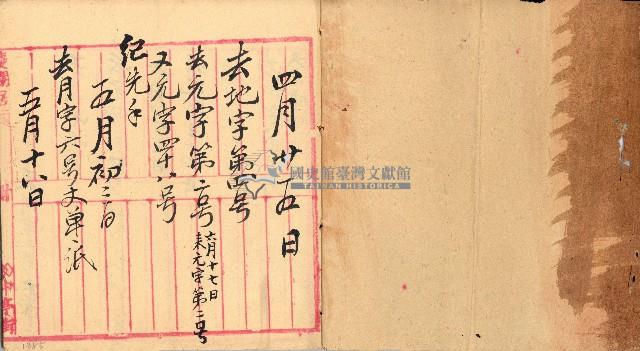 四月廿五日
去地字第四号
去元字第二号 六月十七日
来元字第二号
又元字四十八号
紀先手
五月初二日
去月字六号文单一紙
五月十八日
國史館臺灣文獻館
TAIWAN HISTORICA